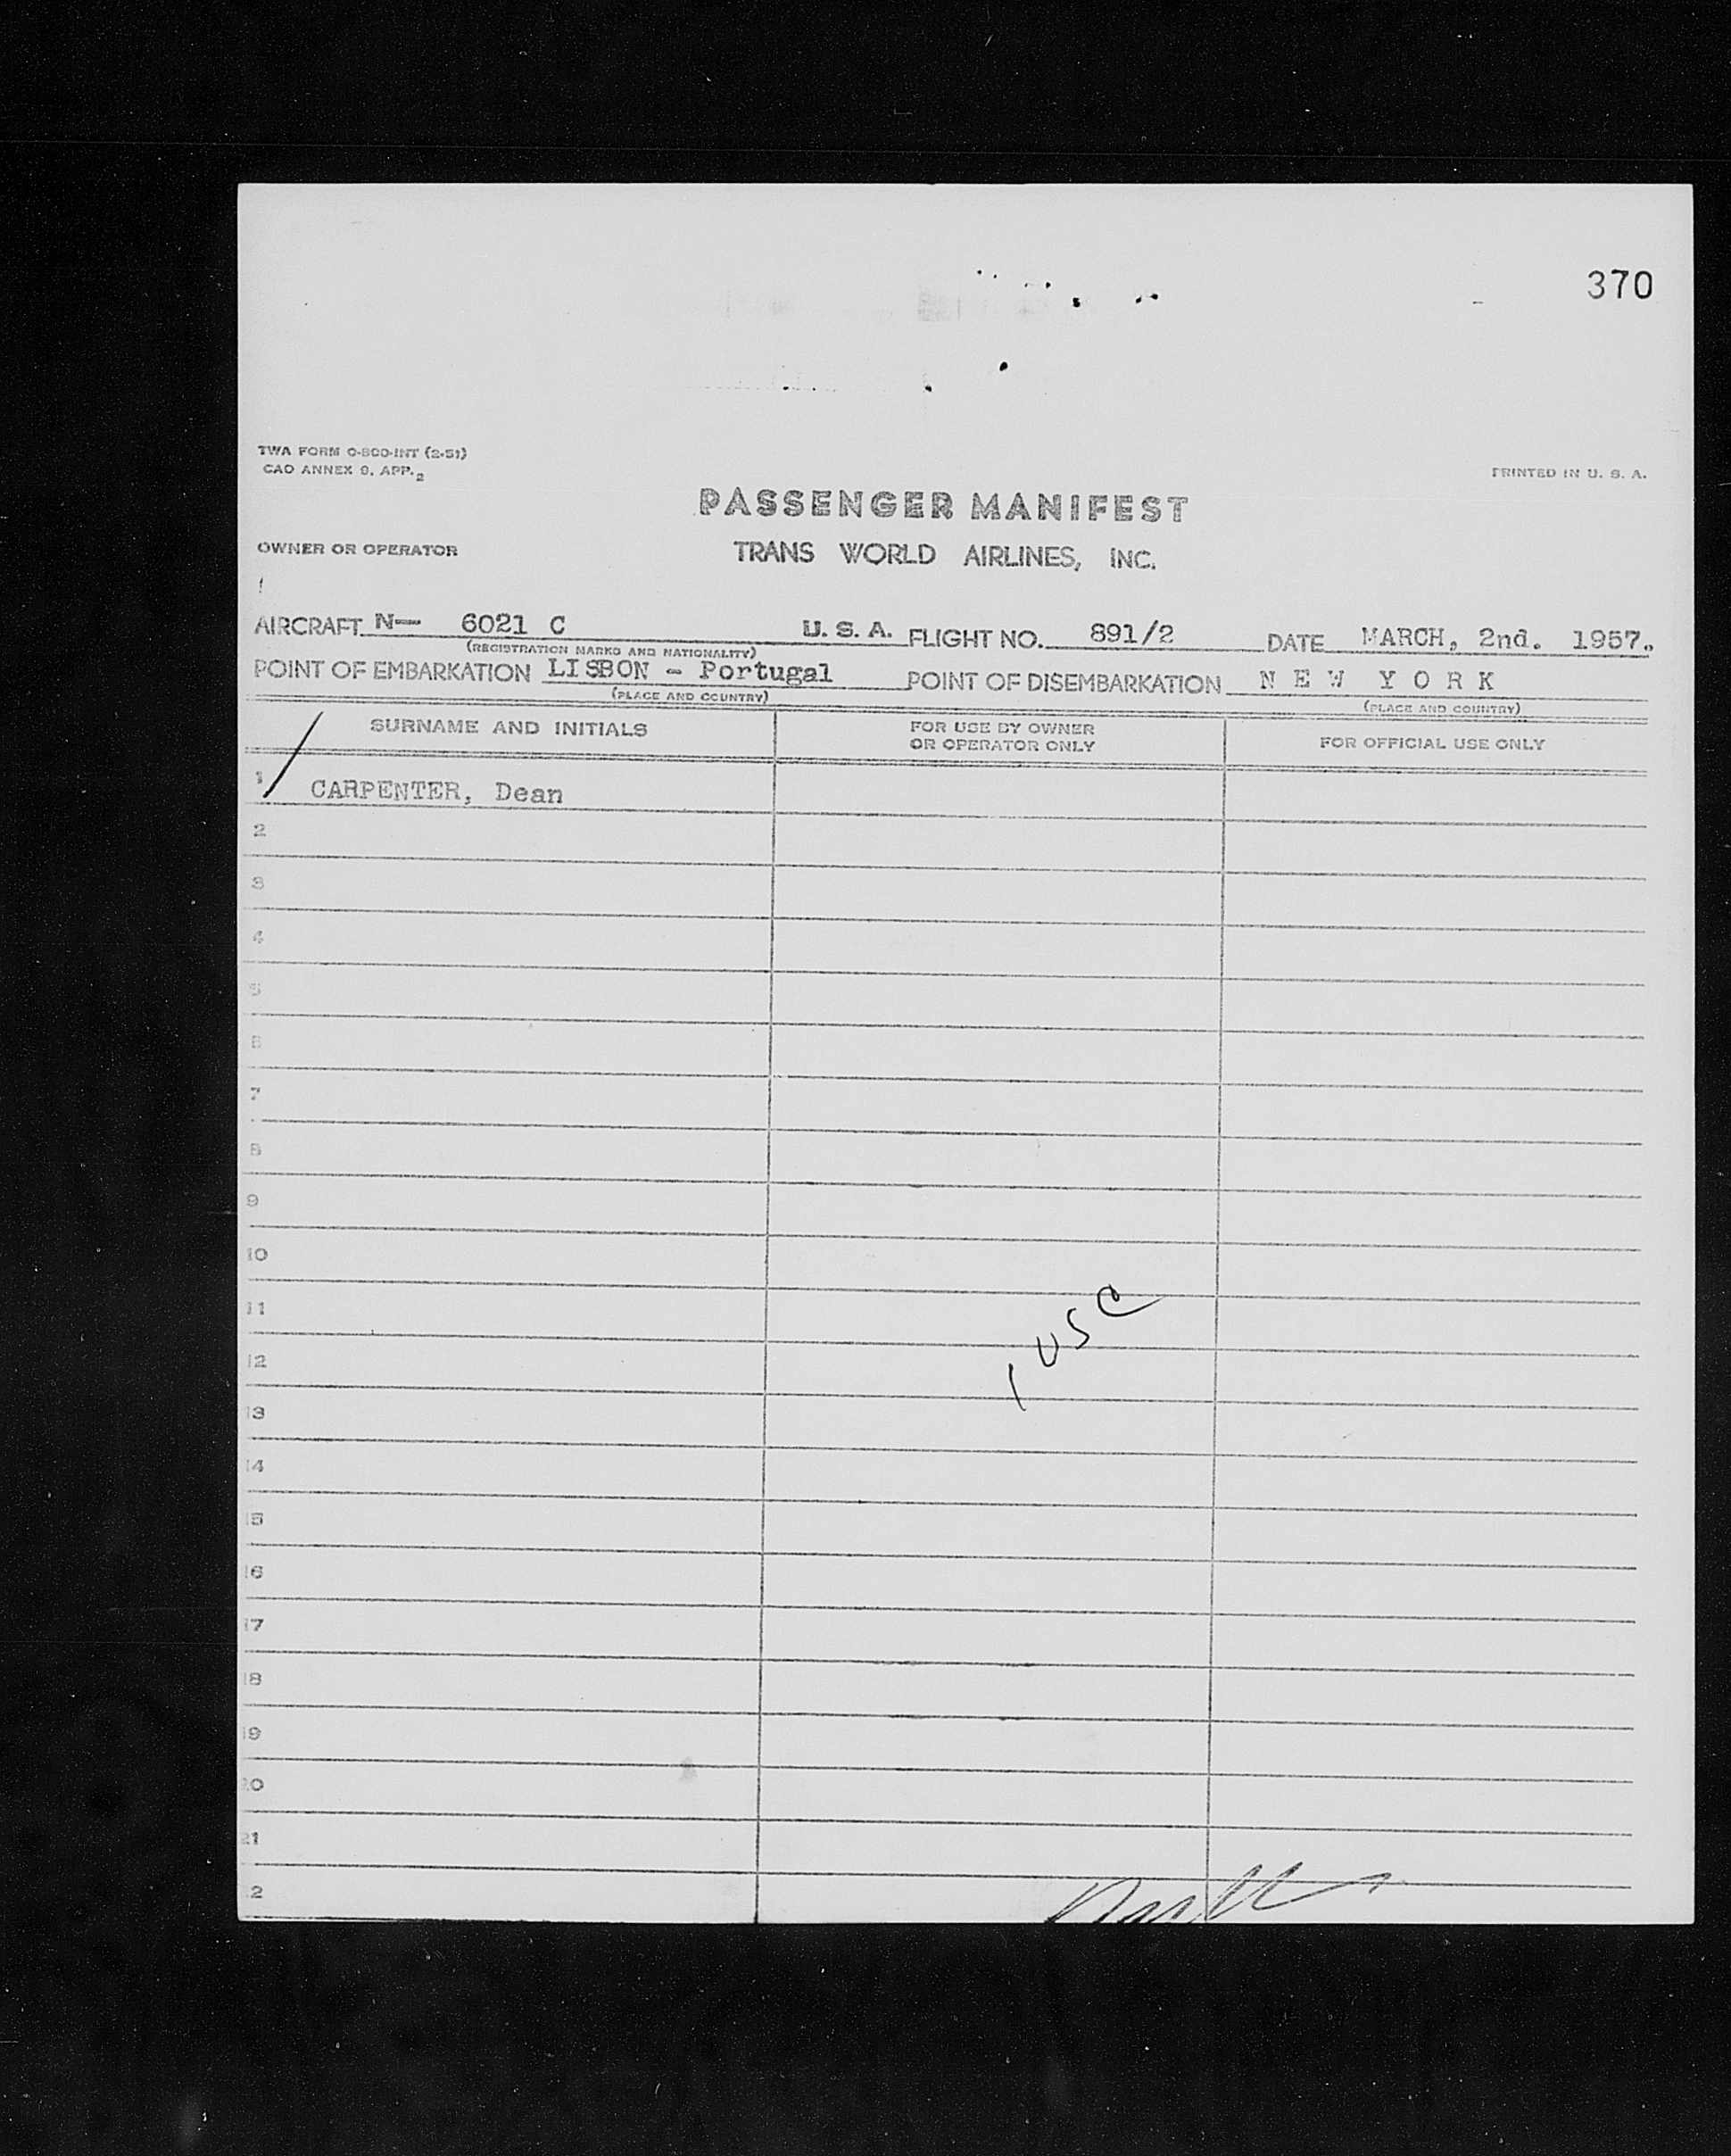 370
TWA FORM O-800-INT (2-51)
CAO ANNEX 9, APP. 2
PRINTED IN U. S. A.
PASSENGER MANIFEST
OWNER OR OPERATOR
TRANS WORLD AIRLINES, INC.
AIRCRAFT N— 6021 C U. S. A. FLIGHT NO. 891/2 DATE MARCH, 2nd. 1957.
(REGISTRATION MARKS AND NATIONALITY)
POINT OF EMBARKATION LISBON - Portugal POINT OF DISEMBARKATION N E W Y O R K
(PLACE AND COUNTRY) (PLACE AND COUNTRY)
SURNAME AND INITIALS
FOR USE BY OWNER
OR OPERATOR ONLY
FOR OFFICIAL USE ONLY
1 CARPENTER, Dean
2
3
4
5
6
7
8
9
10
11
12
1 USC
13
14
15
16
17
18
19
20
21
2